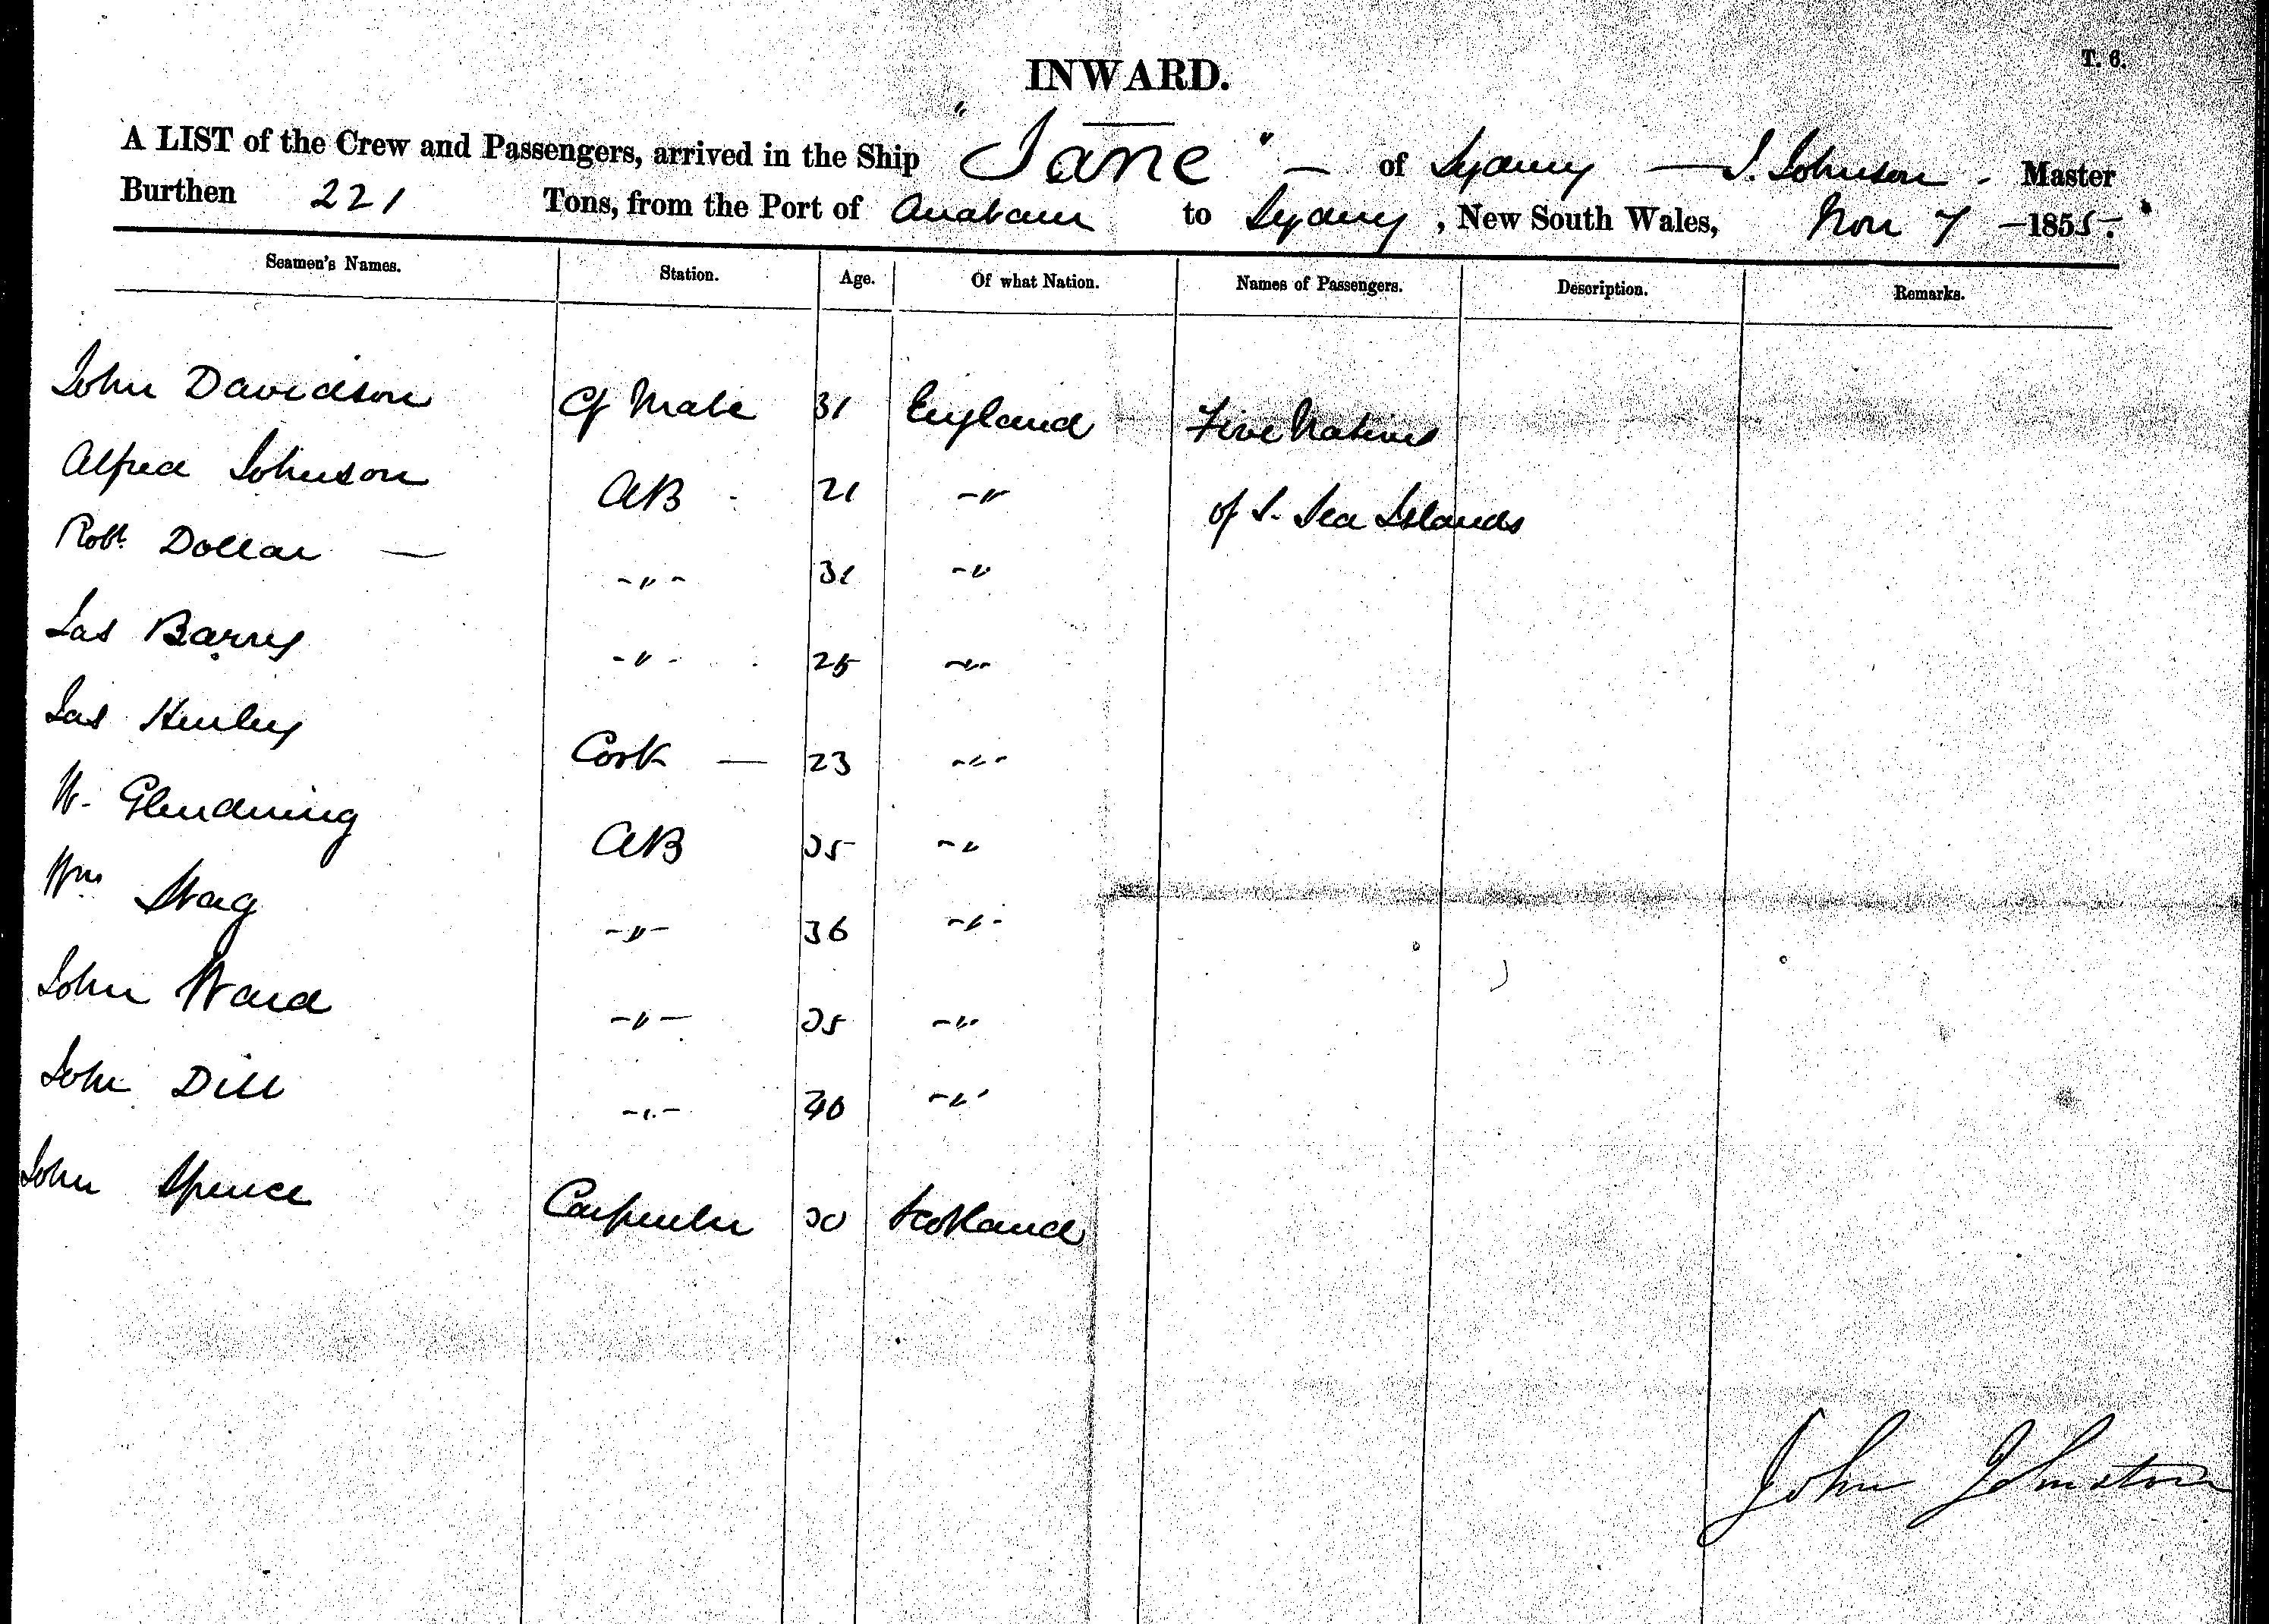 T. 6.
INWARD.
A LIST of the Crew and Passengers, arrived in the Ship "Jane" — of Sydney — J. Johnson - Master
Burthen 221 Tons, from the Port of Anatam to Sydney, New South Wales, Nov 7 -1855.
Seamen's Names. Station. Age. Of what Nation. Names of Passengers. Description. Remarks.
John Davidson Cf Mate 31 England Five Natives
Alfred Johnson AB - 21 -"- of S. Sea Islands
Robt. Dollar — -"- 31 -"
Jas Barry -"- 25 -"-
Jas Henley Cook — 23 -"-
W. Glendining AB 35 -"
Wm Stag -"- 36 -"-
John Ward -"- 35 -"-
John Dill -"- 40 -"-
John Spence Carpenter 30 Scotland
John Johnston